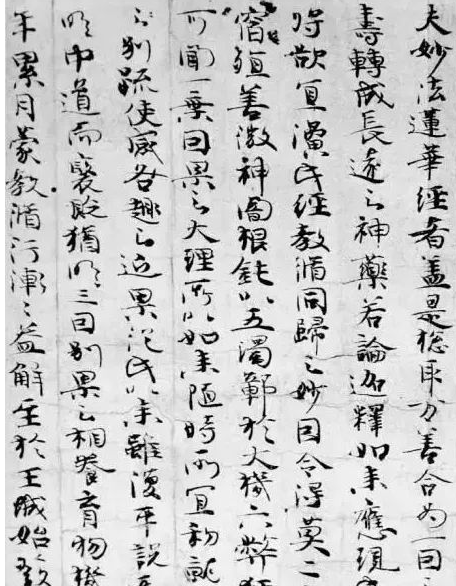 夫妙法蓮華經者蓋是惣取万善合為一因
壽轉成長遠之神藥若論迦釋如来應現
将欲宜演氏經教脩同歸之妙因令得莫二
宿殖善微神闇根鈍以五濁鄣於大機六弊
可聞一乗因果之大理所以如来随時所宜初就
之別疏使感各趣之近果従氏以来雖復平説
明中道而褒貶猶明三因別果之相養育物機
年累月蒙教脩行漸々益解至於王城始發